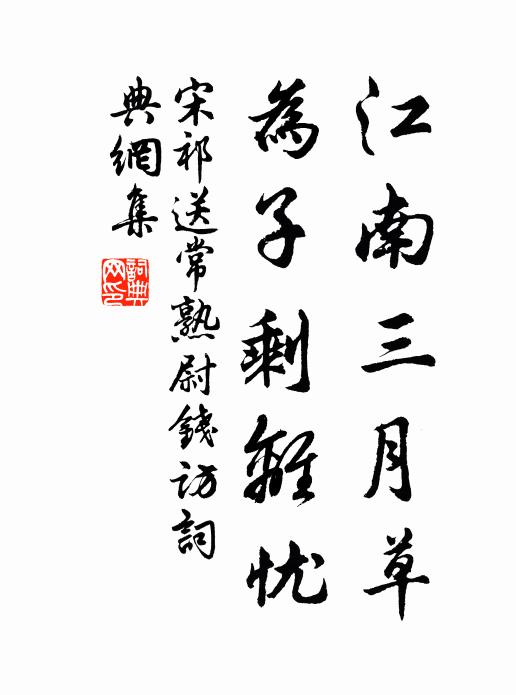 江南三月草
為子剩離忧
宋祁送常熟尉錢访詞
典網集
詞典
网印